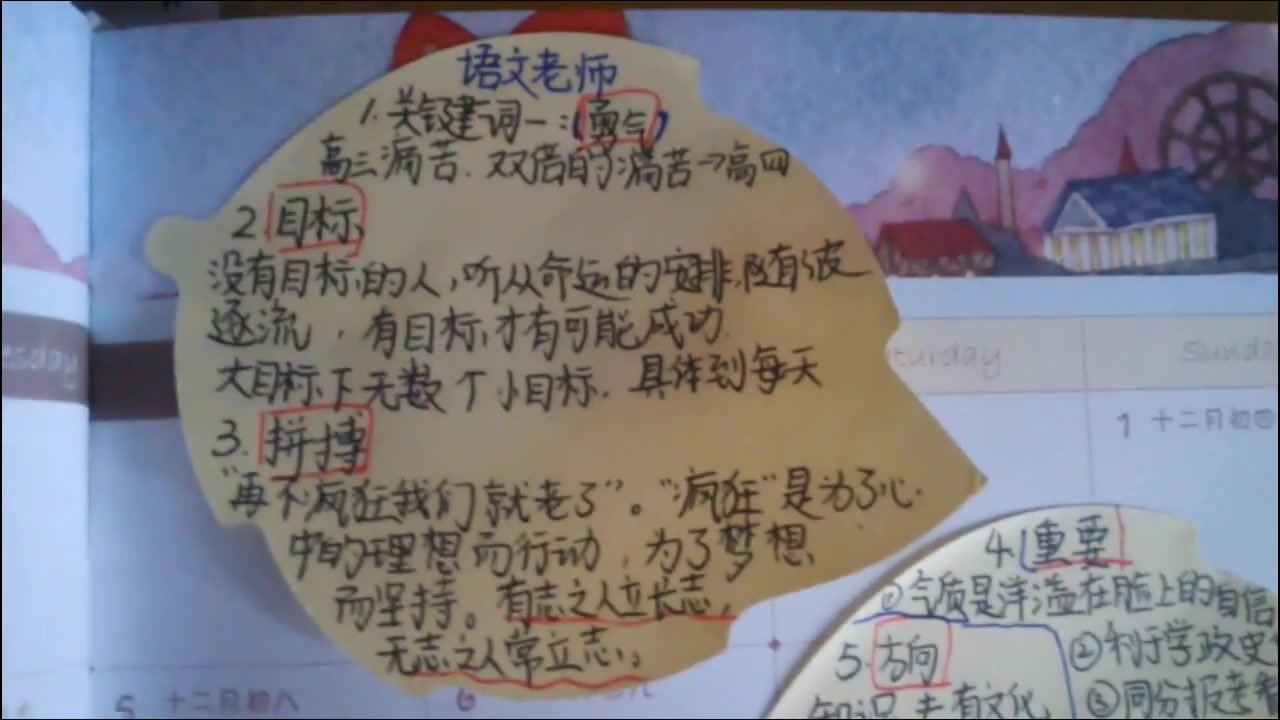 语文老师
1.关键词一:(勇气)
高三痛苦.双倍的痛苦→高四
2.目标
没有目标的人,听从命运的安排,随波
逐流,有目标,才有可能成功.
大目标下无数个小目标.具体到每天
3.拼搏
"再不疯狂我们就老了"。"疯狂"是为了心
中的理想而行动,为了梦想,
而坚持。有志之人立长志,
无志之人常立志。
4.重要
①气质是洋溢在脸上的自信
5.方向
②利于学政史
③同分报考
esday
turday
Sunda
1 十二月初四
5 十二月初八
6